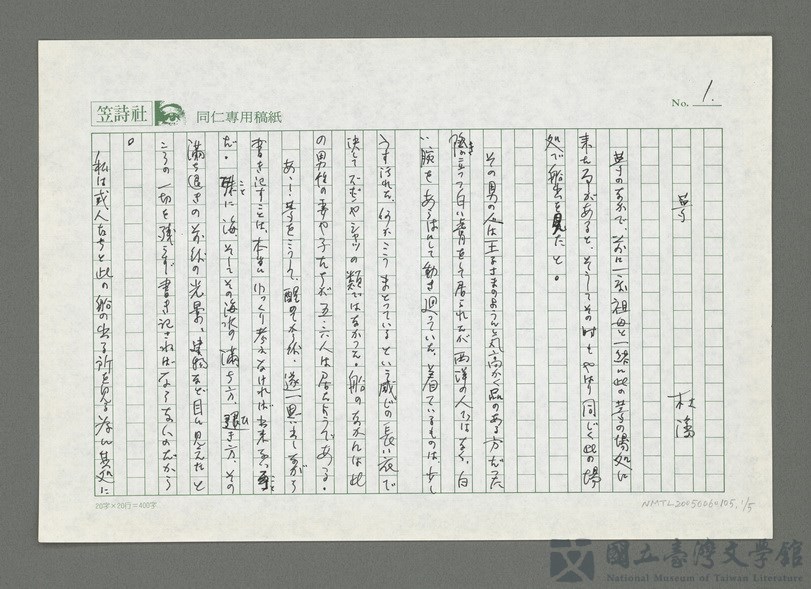 笠詩社
同仁專用稿紙
No. 1.
夢
杜潘
夢のなかで、前に一度祖母と一緒に此の夢の場処に
来た事があると、そうしてその時もやはり同じく此の場
処で船出を見たと。
その男の人は王さまのような気高かく品のある方だった
際立って白い背をして居られたが西洋の人ではなく、白
い腕をあらはにして動き廻っていた。着ているものは少し
うす汚れた、何かこうまとっているという感じの長い衣で
決してズボンやシャツの類ではなかった。船のなかには此
の男性の妻や子たちが五・六人は居たようである。
あゝ夢をこうして、醒めてから後、逐一思い出しながら
書き記すことは、本当にゆっくり考えなければ出来ない事
だ。殊に海、そしてその海水の満ち方、退き方、その
満ち退きの前後の光景、建物など目に見えたと
ころの一切を残らず書き記さねばならないのだから
。
私は或人たちと此の船の出る所を見る為に其処に
20字×20行=400字
NMTL20050060105, 1/5
國立臺灣文學館
National Museum of Taiwan Literature